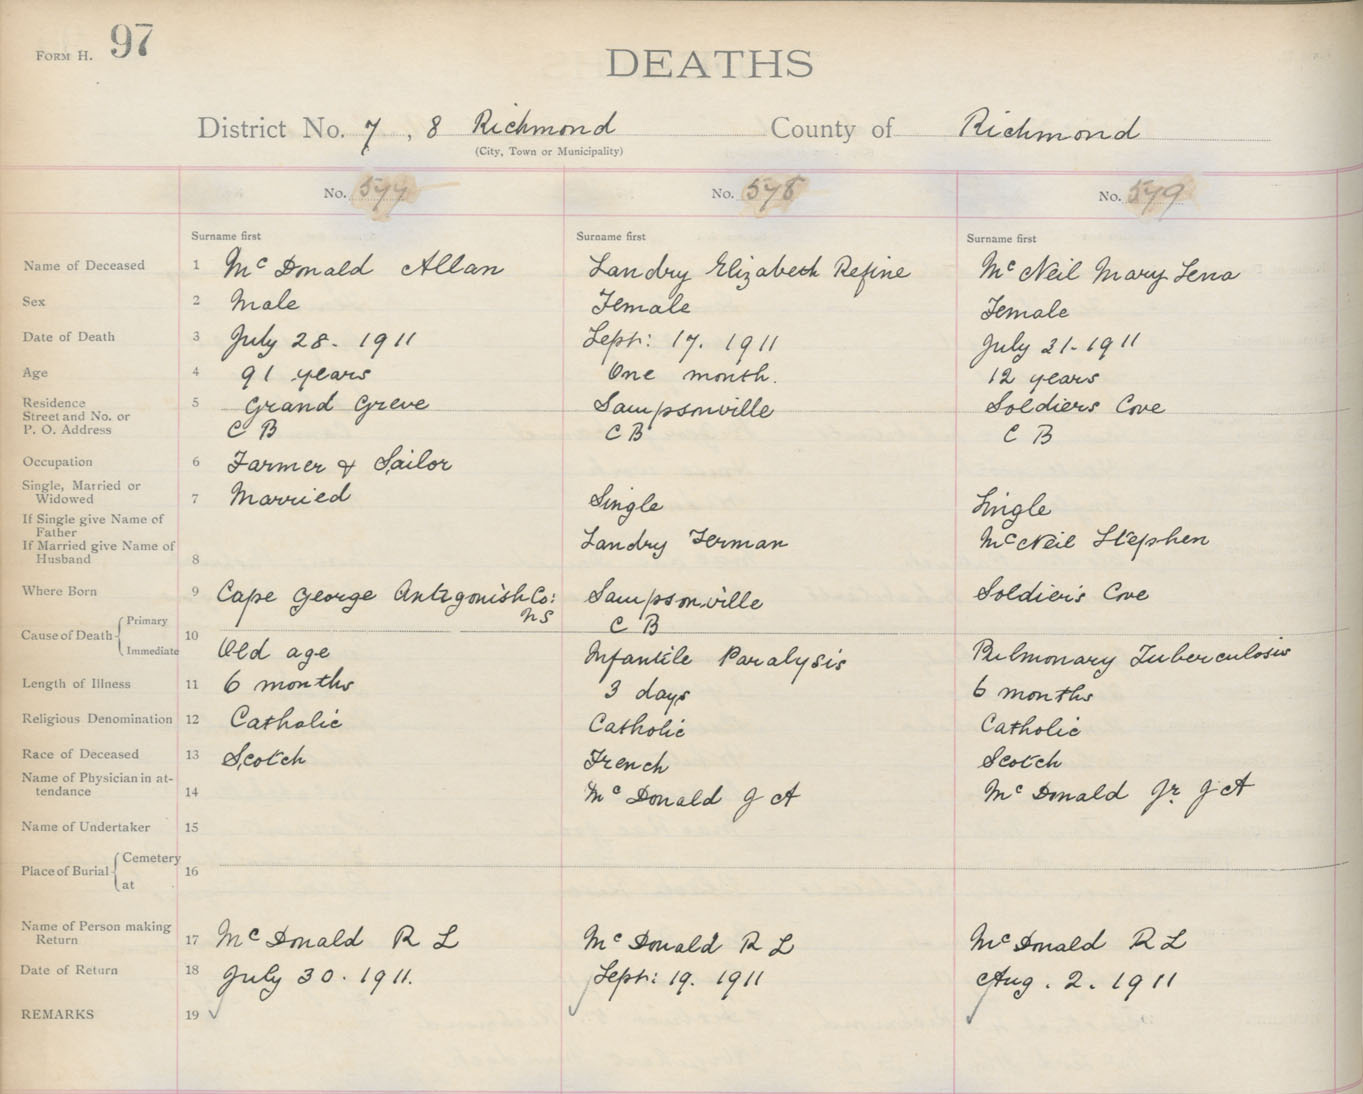 FORM H. 97
DEATHS
District No. 7, 8 Richmond County of Richmond
(City, Town or Municipality)
No. 577 No. 578 No. 579
Surname first Surname first Surname first
Name of Deceased 1 McDonald Allan Landry Elizabeth Refine McNeil Mary Lena
Sex 2 Male Female Female
Date of Death 3 July 28. 1911 Sept: 17. 1911 July 31. 1911
Age 4 91 years One month. 12 years
Residence 5 Grand Greve Sampsonville Soldiers Cove
Street and No. or
P. O. Address C B C B C B
Occupation 6 Farmer & Sailor
Single, Married or
Widowed 7 Married Single Single
If Single give Name of
Father
If Married give Name of Landry Ferman McNeil Stephen
Husband 8
Where Born 9 Cape George Antigonish Co: Sampsonville Soldier's Cove
NS C B
Cause of Death Primary
10
Immediate Old age Infantile Paralysis Pulmonary Tuberculosis
Length of Illness 11 6 months 3 days 6 months
Religious Denomination 12 Catholic Catholic Catholic
Race of Deceased 13 Scotch French Scotch
Name of Physician in at-
tendance 14 McDonald J A McDonald Jr. J A
Name of Undertaker 15
Place of Burial Cemetery
16
at
Name of Person making
Return 17 McDonald R L McDonald R L McDonald R L
Date of Return 18 July 30. 1911. Sept: 19. 1911 Aug. 2. 1911
REMARKS 19